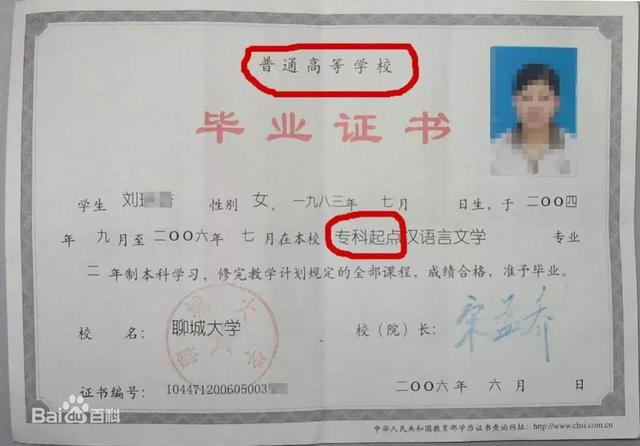 普通高等学校
毕业证书
学生 刘 性别 女，一九八三年 七月 日生，于二〇〇四
年 九月至二〇〇六年 七月在本校 专科起点汉语言文学 专业
二 年制本科学习，修完教学计划规定的全部课程，成绩合格，准予毕业。
聊城大学
校 名： 聊城大学 校（院）长： 宋益乔
证书编号： 104471200605003 二〇〇六年 六月 日
Baidu百科
中华人民共和国教育部学历证书查询网址：http://www.chsi.com.cn